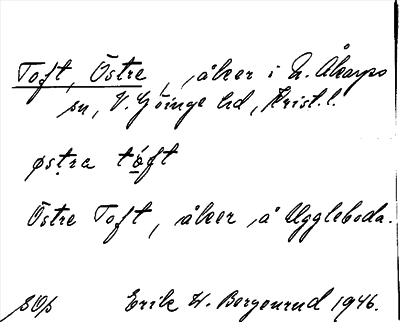 Toft, Östre, , åker i N. Åkarps
sn, V. Göinge hd, Krist. l.
østra tóft
Östre Toft, åker å Uggleboda.
sOp Erik W. Bergenrud 1946.